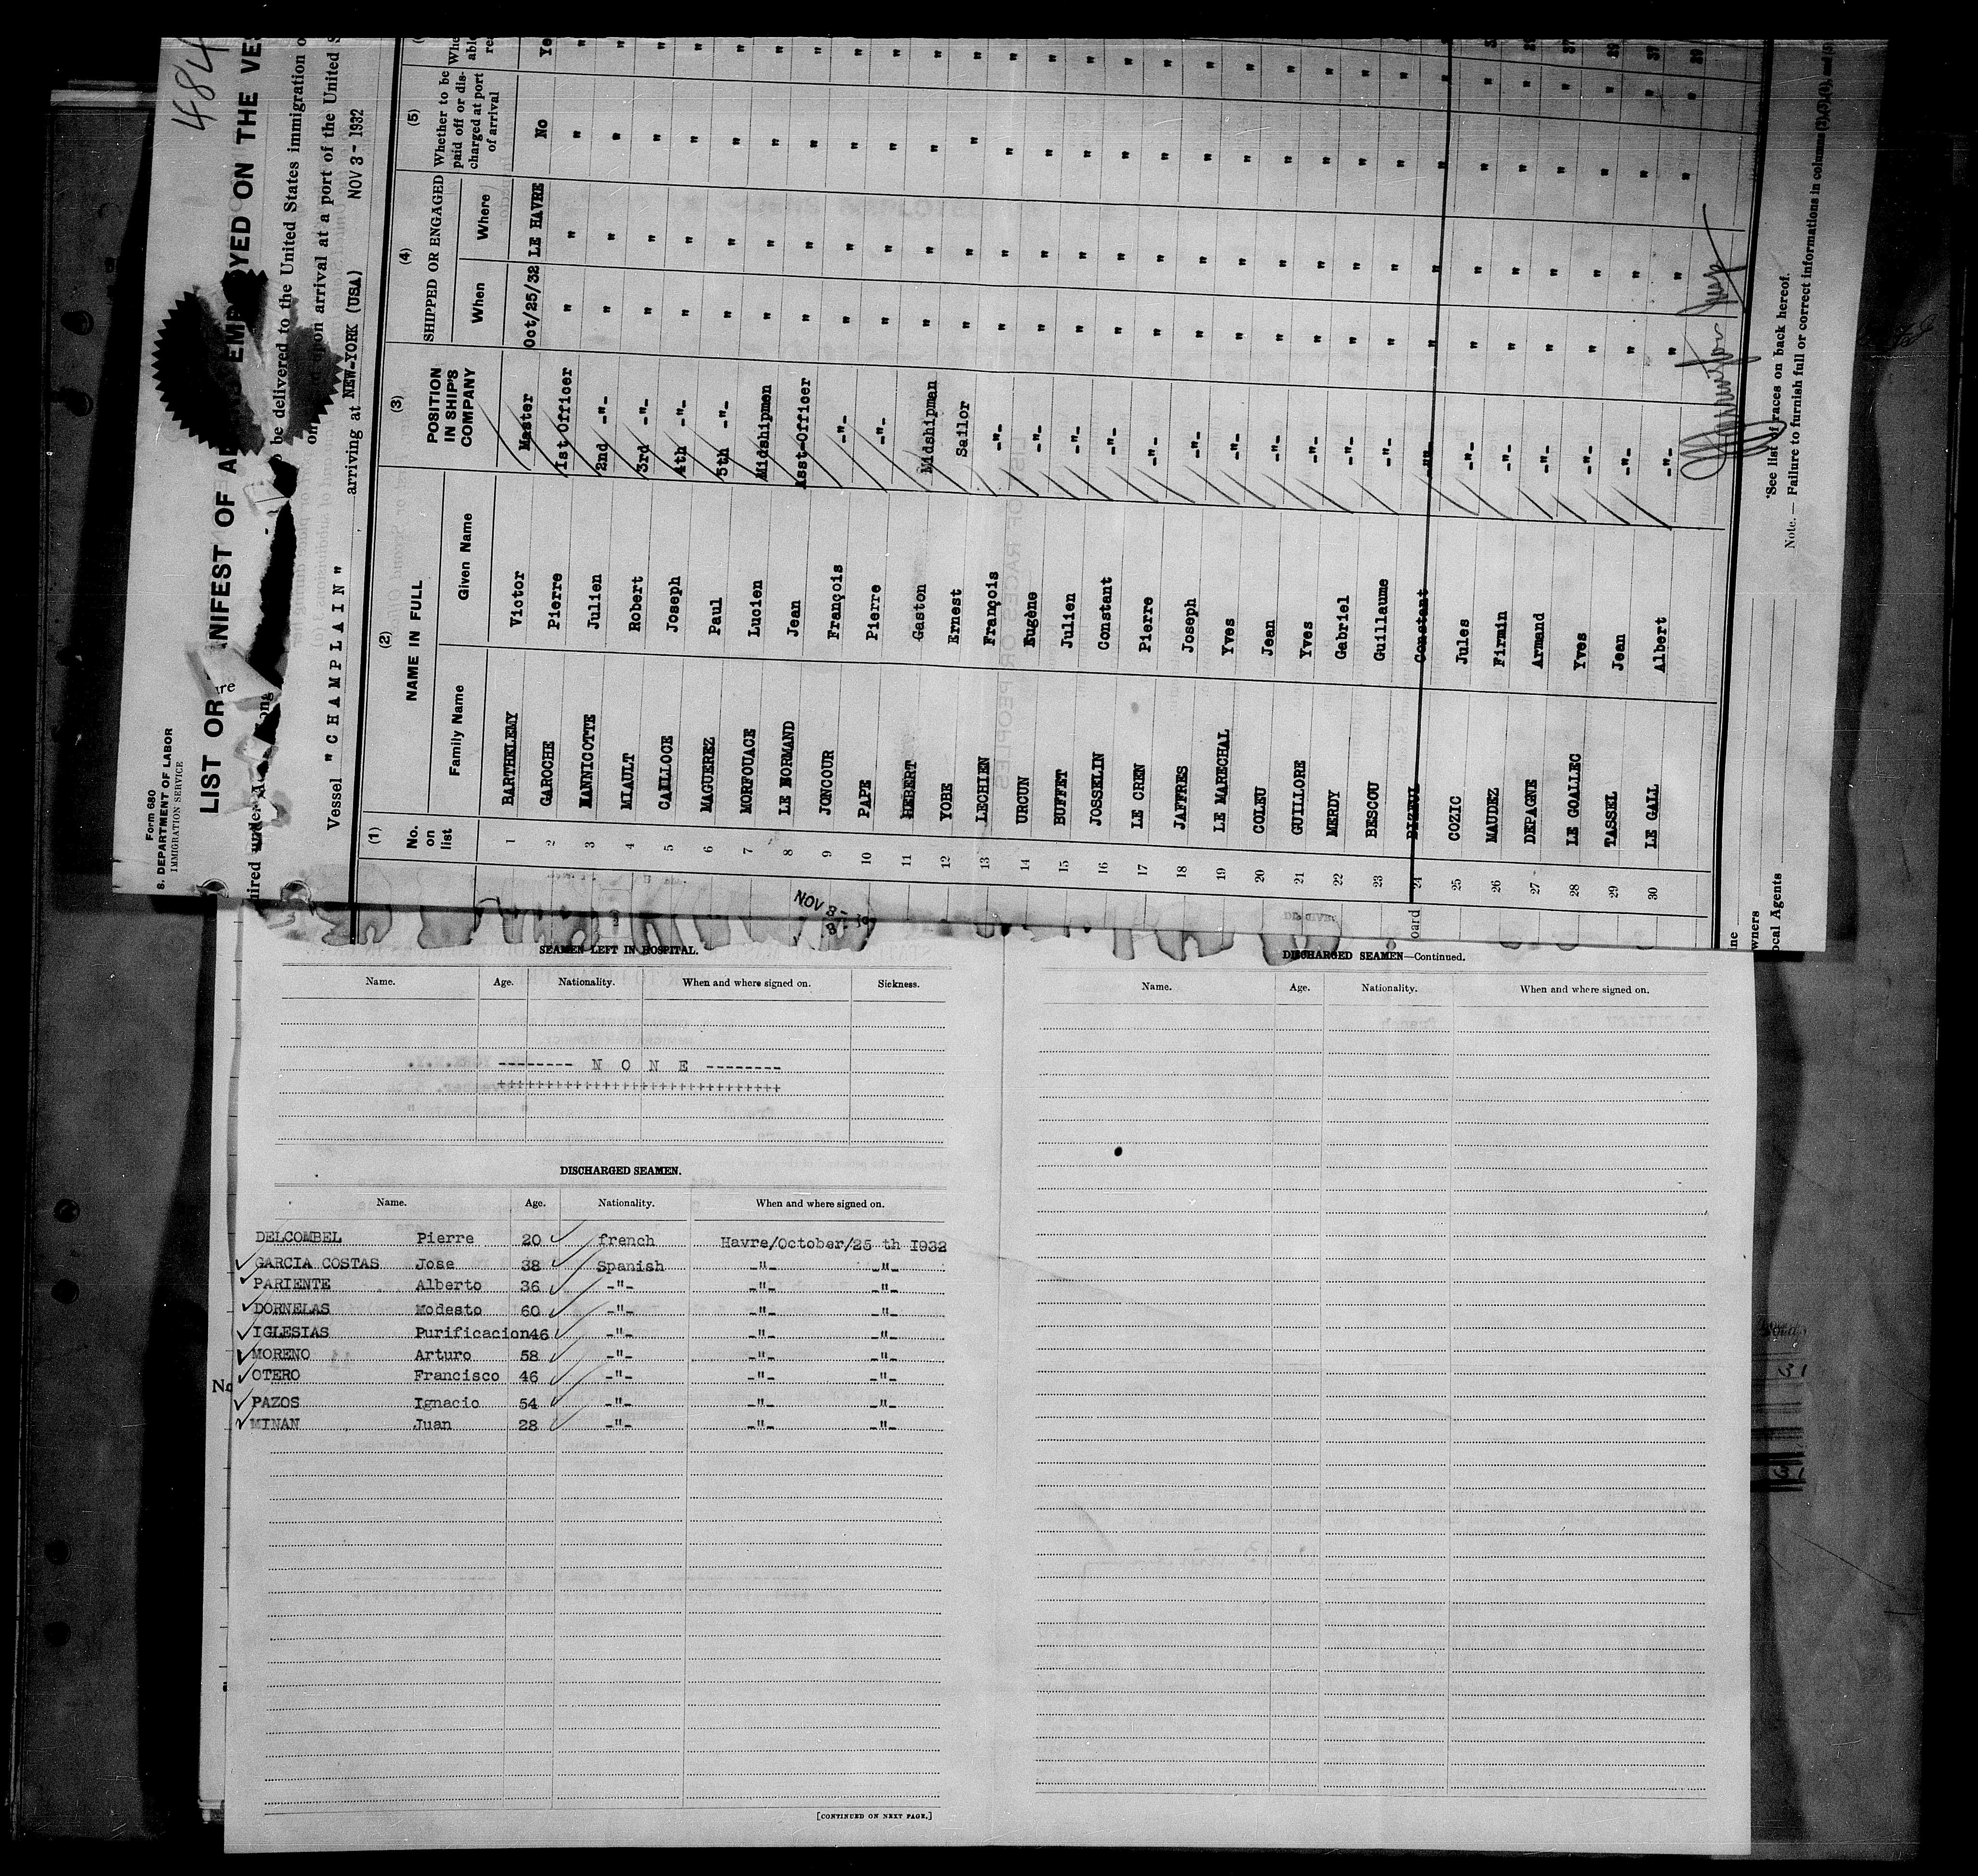 484
Form 680
S. DEPARTMENT OF LABOR
IMMIGRATION SERVICE
LIST OR MANIFEST OF EMPLOYED ON THE VES
uired under
be delivered to the United States immigration o
on arrival at a port of the United S
Vessel "CHAMPLAIN" arriving at NEW-YORK (USA) NOV 3 - 1932
(1) (2) (3) (4) (5)
No. on list NAME IN FULL POSITION IN SHIP'S COMPANY SHIPPED OR ENGAGED Whether to be paid off or discharged at port of arrival
Family Name Given Name When Where
1 BARTHELEMY Victor Master Oct/25/32 LE HAVRE No Ye
2 GAROCHE Pierre 1st Officer " " " "
3 HANNICOTTE Julien 2nd -"- " " " "
4 MIAULT Robert 3rd -"- " " " "
5 CAILLOCE Joseph 4th -"- " " " "
6 MAGUEREZ Paul 5th -"- " " " "
7 MORFOUACE Lucien Midshipmen " " " "
8 LE NORMAND Jean Asst-Officer " " " "
9 JONCOUR François -"- " " " "
10 PAPE Pierre -"- " " " "
11 HEBERT Gaston Midshipman " " " "
12 YOBE Ernest Sailor " " " "
13 LECHIEN François -"- " " " "
14 URCUN Eugène -"- " " " "
15 BUFFET Julien -"- " " " "
16 JOSSELIN Constant -"- " " " "
17 LE CREN Pierre -"- " " " "
18 JAFFRES Joseph -"- " " " "
19 LE MARECHAL Yves -"- " " " "
20 COLEU Jean -"- " " " "
21 GUILLORE Yves -"- " " " "
22 MERDY Gabriel -"- " " " "
23 BESCOU Guillaume -"- " " " "
24 DIZEUL Constant -"- " " " "
25 COZIC Jules -"- " " " "
26 MAUDEZ Firmin -"- " " " "
27 DEPAGNE Armand -"- " " " "
28 LE GOALLEC Yves -"- " " " "
29 TASSEL Jean -"- " " " "
30 LE GALL Albert -"- " " " "
ne
wners
ocal Agents
*See list of races on back hereof.
Note. — Failure to furnish full or correct informations in columns
NOV 8 -
SEAMEN LEFT IN HOSPITAL.
Name. Age. Nationality. When and where signed on. Sickness.
-------- N O N E --------
++++++++++++++++++++++++++++++
DISCHARGED SEAMEN.
Name. Age. Nationality. When and where signed on.
DELCOMBEL Pierre 20 french Havre/October/25 th I932
GARCIA COSTAS Jose 38 Spanish -"- -"-
PARIENTE Alberto 36 -"- -"- -"-
DORNELAS Modesto 60 -"- -"- -"-
IGLESIAS Purificacion 46 -"- -"- -"-
MORENO Arturo 58 -"- -"- -"-
OTERO Francisco 46 -"- -"- -"-
PAZOS Ignacio 54 -"- -"- -"-
MINAN Juan 28 -"- -"- -"-
[CONTINUED ON NEXT PAGE.]
DISCHARGED SEAMEN—Continued.
Name. Age. Nationality. When and where signed on.